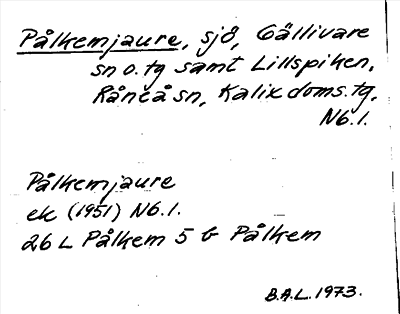 Pålkemjaure, sjö, Gällivare
sn o. tg samt Lillspiken,
Råneå sn, Kalix doms.tg.
Nb.l.
Pålkemjaure
ek (1951) Nb.l.
26 L Pålkem 5 b Pålkem
B.A.L. 1973.